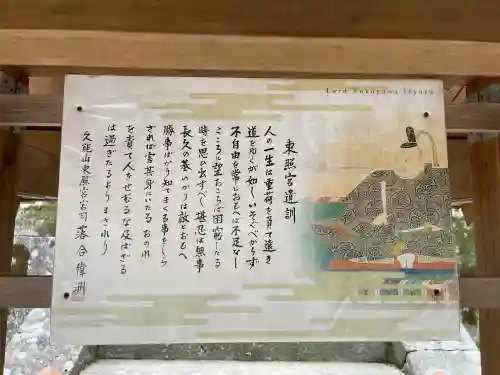 Lord Tokugawa Ieyasu
東照宮遺訓
人の一生は重荷を負て遠き
道を行くが如しいそぐべからず
不自由を常とおもへば不足なし
こころに望おこらば困窮したる
時を思ひ出すべし堪忍は無事
長久の基いかりは敵とおもへ
勝事ばかり知てまくる事をしら
ざれば害其身にいたるおのれ
を責て人をせむるな及ばざる
は過ぎたるよりまされり
久能山東照宮宮司 落合偉洲